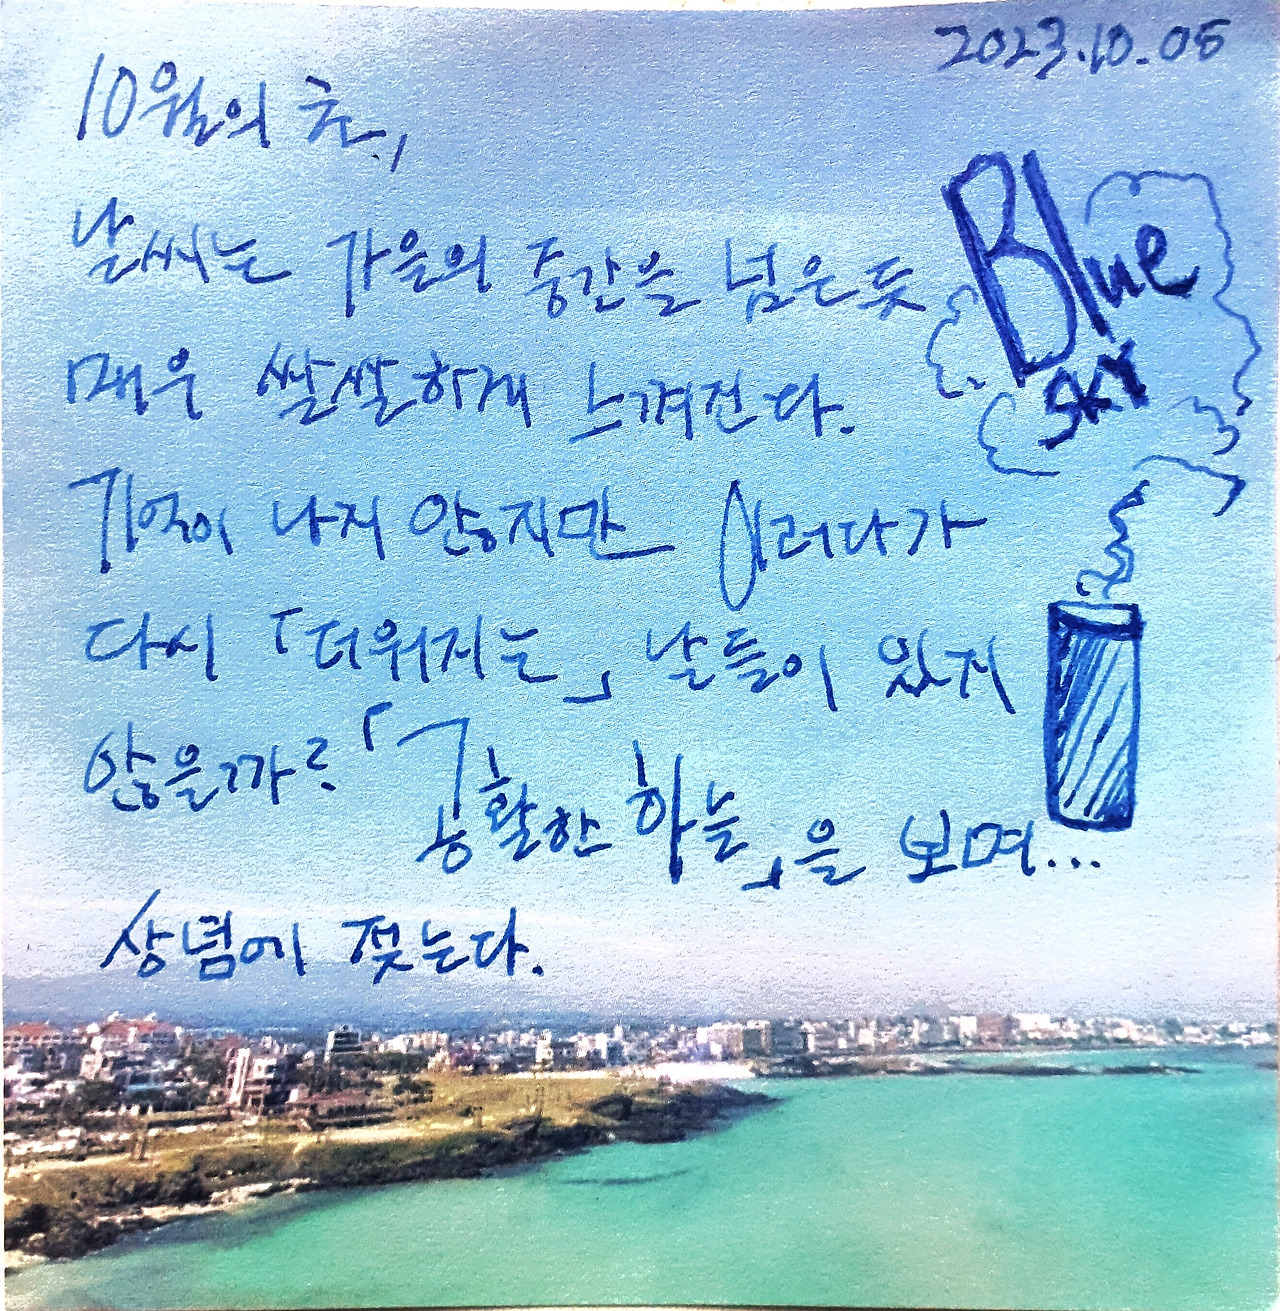 2023.10.05
10월의 초,
날씨는 가을의 중간을 넘은듯
매우 쌀쌀하게 느껴진다.
Blue
SKY
기억이 나지 않지만 이러다가
다시 「더워지는」 날들이 있지
않을까? 「공활한 하늘」을 보며...
상념에 젖는다.